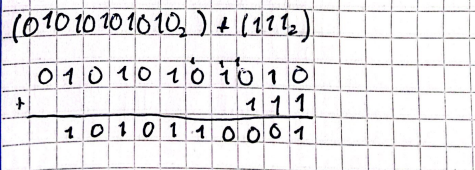 (01010101010₂) + (111₂)
1 1 1
0 1 0 1 0 1 0 1 0 1 0
+ 1 1 1
1 0 1 0 1 1 0 0 0 1